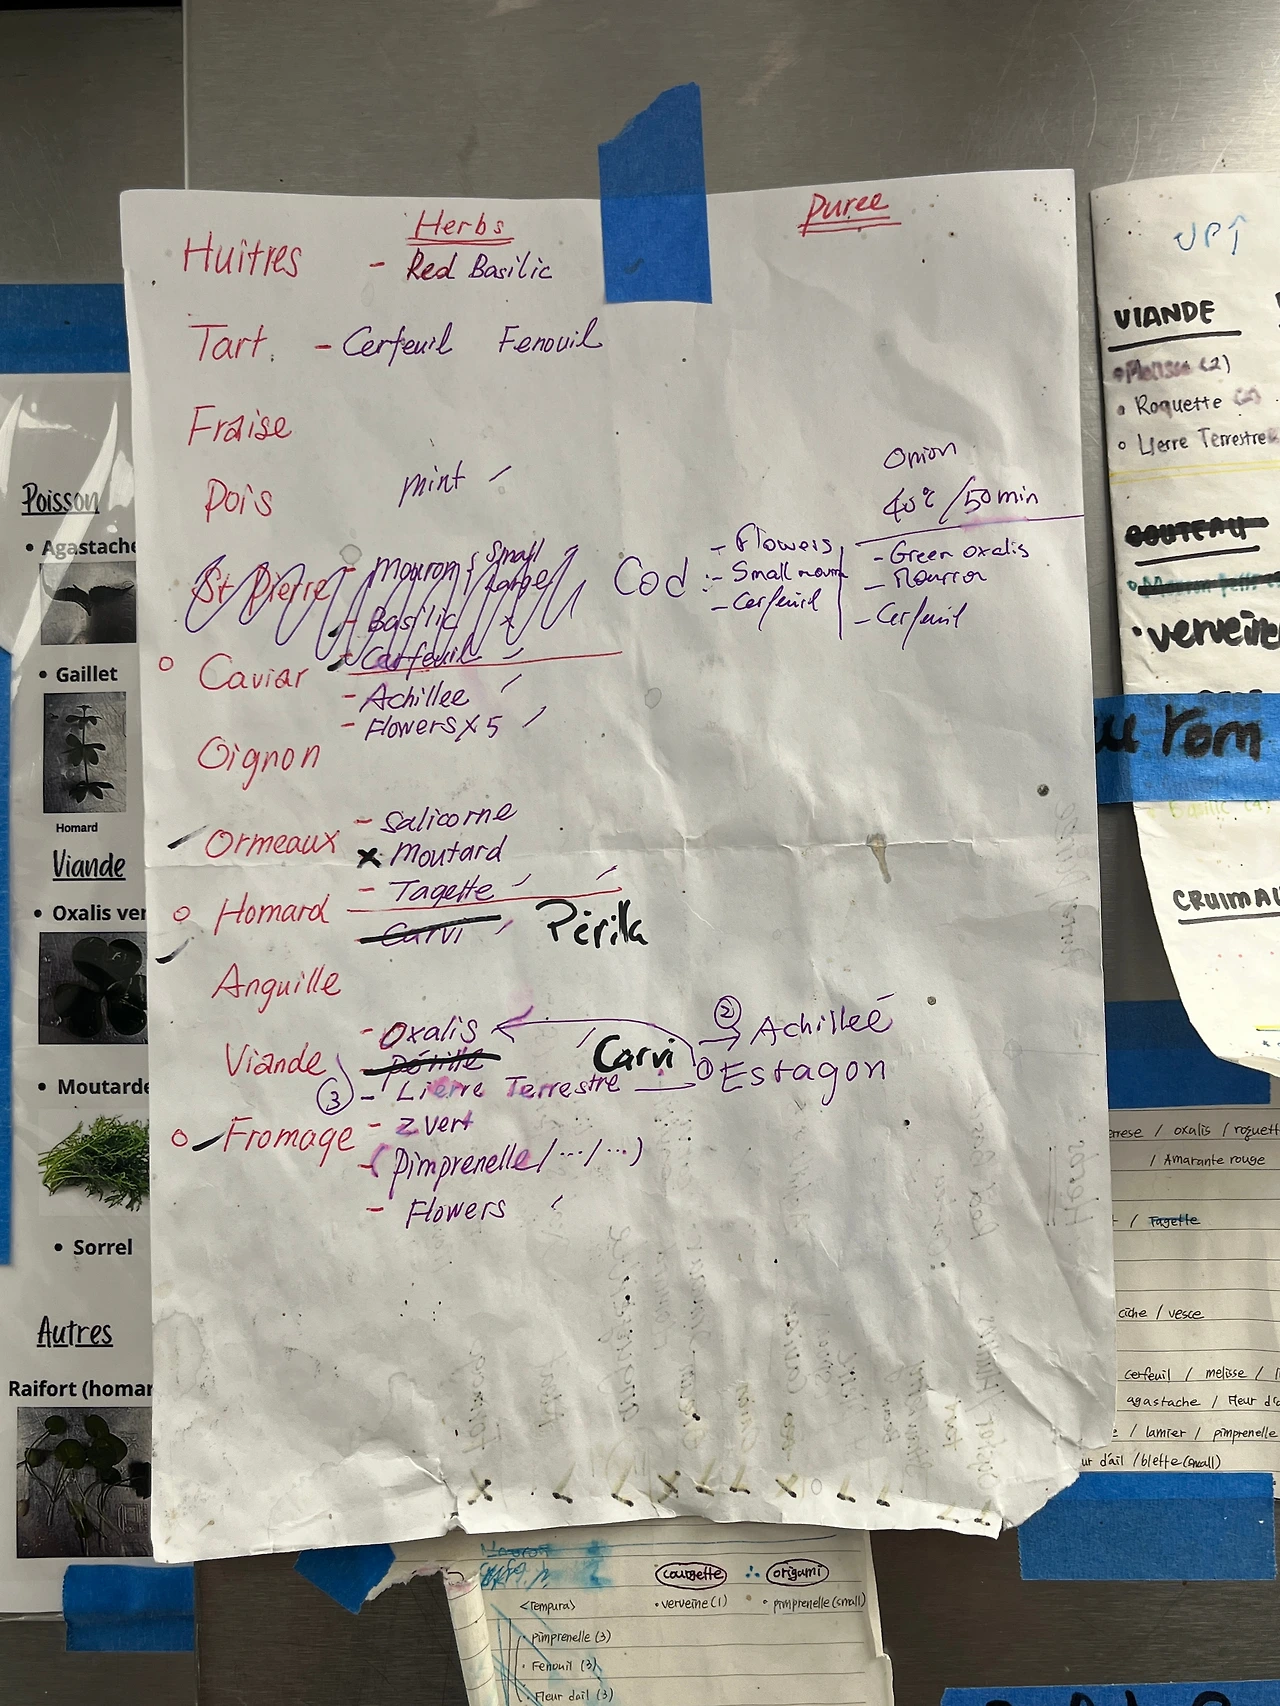 Herbs
Puree
Huîtres - Red Basilic
Tart. - Cerfeuil Fenouil
Fraise
Pois mint
Onion
40°c /50min
St Pierre - mouron { Small Large
- Basilic x
- Cerfeuil
Cod :
- Flowers
- Small mourn
- Cerfeuil
- Green oxalis
- Mourron
- Cerfeuil
Caviar
- Achillee
- Flowers x 5
Oignon
Ormeaux
- Salicorne
x Moutard
- Tagette
Homard
Carvi Périlla
Anguille
Viande
- Oxalis
Pérille
③ - Lierre Terrestre
Carvi
② → Achilleé
① Estagon
Fromage
- z vert
- ( pimprenelle / ... / ... )
- Flowers
Poisson
• Agastache
• Gaillet
Homard
Viande
• Oxalis ver
• Moutarde
• Sorrel
Autres
Raifort (homar
UP↑
VIANDE
• Melisse (2)
• Roquette
• Lierre Terrestre
COUTEAU
• verveine
au rom
CRUMAU
rrese / oxalis / roquett
/ Amarante rouge
/ Tagette
ciche / vesce
cerfeuil / melisse /
agastache / Fleur d'
/ lamier / pimprenelle
ur d'ail / blette (small)
courgette ∴ origami
<Tempura> • verveine (1) • pimprenelle (small)
• pimprenelle (3)
• Fenouil (3)
• Fleur dail (3)